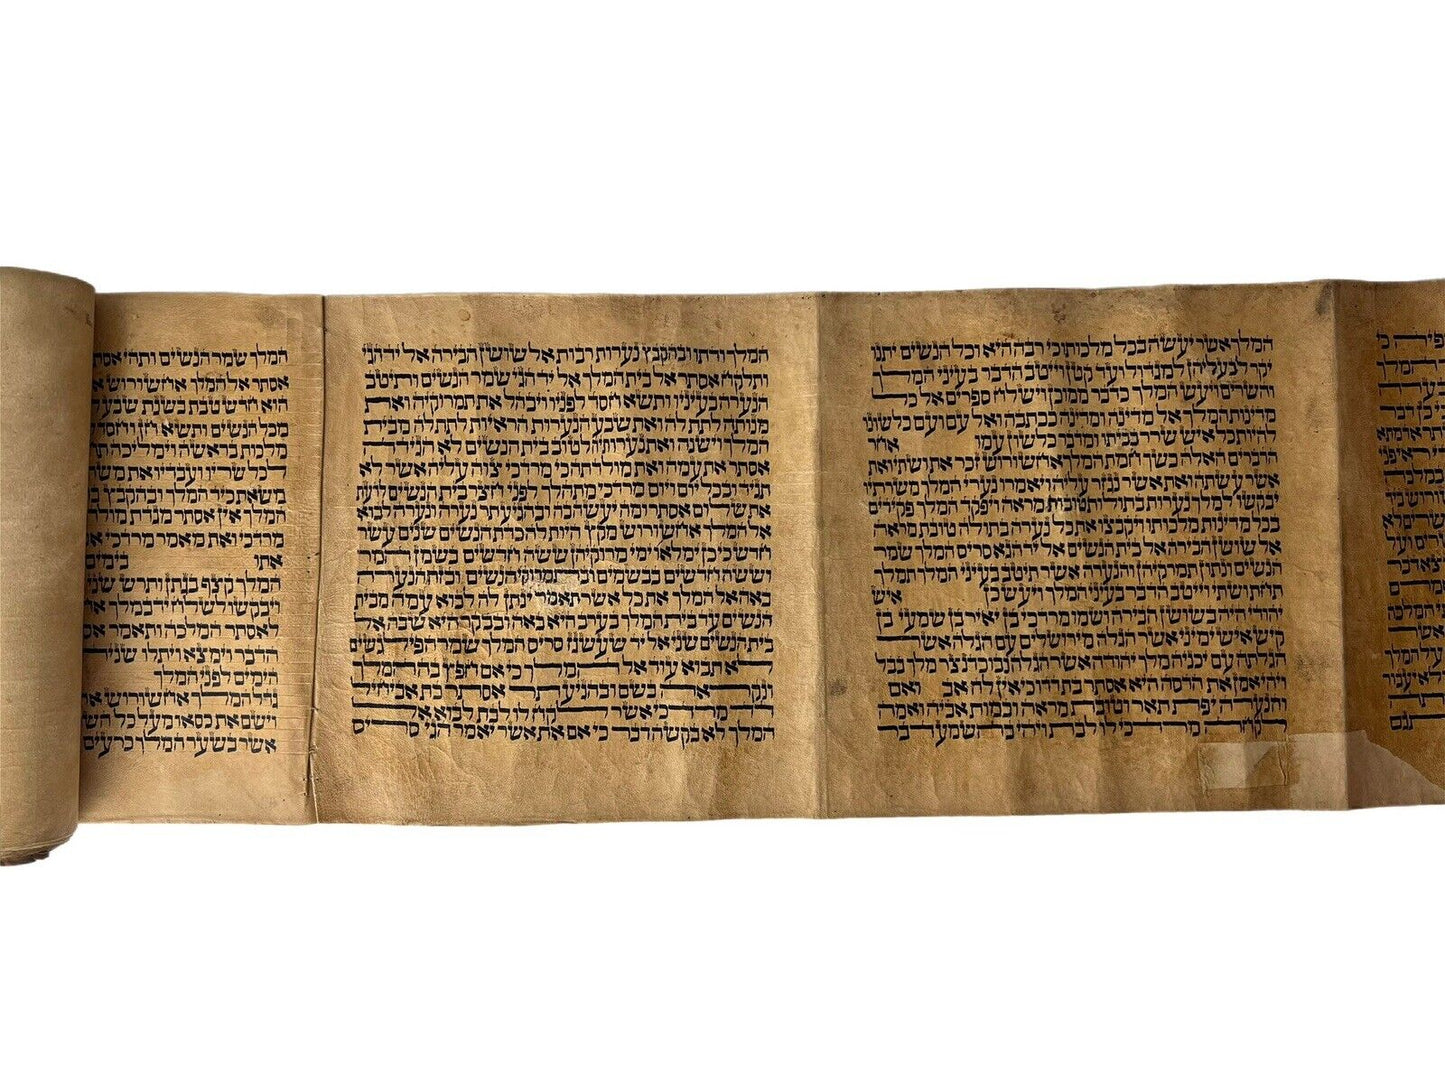 המלך אשר יעשה בכל מלכותו כי רבה היא וכל הנשים יתנו
יקר לבעליהן למגדול ועד קטן וייטב הדבר בעיני המלך
והשרים ויעש המלך כדבר ממוכן וישלח ספרים אל כל
מדינות המלך אל מדינה ומדינה ככתבה ואל עם ועם כלשונו
להיות כל איש שרר בביתו ומדבר כלשון עמו אחר
הדברים האלה כשך חמת המלך אחשורוש זכר את ושתי ואת
אשר עשתה ואת אשר נגזר עליה ויאמרו נערי המלך משרתיו
יבקשו למלך נערות בתולות טובות מראה ויפקד המלך פקידים
בכל מדינות מלכותו ויקבצו את כל נערה בתולה טובת מראה
אל שושן הבירה אל בית הנשים אל יד הגא סריס המלך שמר
הנשים ונתון תמרקיהן והנערה אשר תיטב בעיני המלך תמלך
תחת ושתי וייטב הדבר בעיני המלך ויעש כן איש
יהודי היה בשושן הבירה ושמו מרדכי בן יאיר בן שמעי בן
קיש איש ימיני אשר הגלה מירושלים עם הגלה אשר
הגלתה עם יכניה מלך יהודה אשר הגלה נבוכדנצר מלך בבל
ויהי אמן את הדסה היא אסתר בת דדו כי אין לה אב ואם
והנערה יפת תאר וטובת מראה ובמות אביה ואמה
לקחה מרדכי לו לבת ויהי בהשמע דבר
המלך ודתו ובהקבץ נערות רבות אל שושן הבירה אל יד הגי
ותלקח אסתר אל בית המלך אל יד הגי שמר הנשים ותיטב
הנערה בעיניו ותשא חסד לפניו ויבהל את תמרוקיה ואת
מנותה לתת לה ואת שבע הנערות הראיות לתת לה מבית
המלך וישנה ואת נערותיה לטוב בית הנשים לא הגידה
אסתר את עמה ואת מולדתה כי מרדכי צוה עליה אשר לא
תגיד ובכל יום ויום מרדכי מתהלך לפני חצר בית הנשים לדעת
את שלום אסתר ומה יעשה בה ובהגיע תר נערה ונערה לבוא
אל המלך אחשורוש מקץ היות לה כדת הנשים שנים עשר
חדש כי כן ימלאו ימי מרוקיהן ששה חדשים בשמן המר
וששה חדשים בבשמים ובתמרוקי הנשים ובזה הנערה
באה אל המלך את כל אשר תאמר ינתן לה לבוא עמה מבית
הנשים עד בית המלך בערב היא באה ובבקר היא שבה אל
בית הנשים שני אל יד שעשגז סריס המלך שמר הפילגשים
לא תבוא עוד אל המלך כי אם חפץ בה המלך
ונקראה בשם ובהגיע תר אסתר בת אביחיל
דד מרדכי אשר לקח לו לבת לבוא אל
המלך לא בקשה דבר כי אם את אשר יאמר הגי סריס
המלך שמר הנשים ותהי אסתר
אסתר אל המלך אחשורוש
הוא חדש טבת בשנת שבע
מכל הנשים ותשא חן וחסד
מלכות בראשה וימליכה
לכל שריו ועבדיו את משתה
משאת כיד המלך ובהקבץ
המלך אין אסתר מגדת מולדתה
מרדכי ואת מאמר מרדכי
אתו בימים
המלך קצף בגתן ותרש שני
ויבקשו לשלח יד במלך
לאסתר המלכה ותאמר
הדבר וימצא ויתלו שניהם
הימים לפני המלך
גדל המלך אחשורוש
וישם את כסאו מעל כל השרים
אשר בשער המלך כרעים